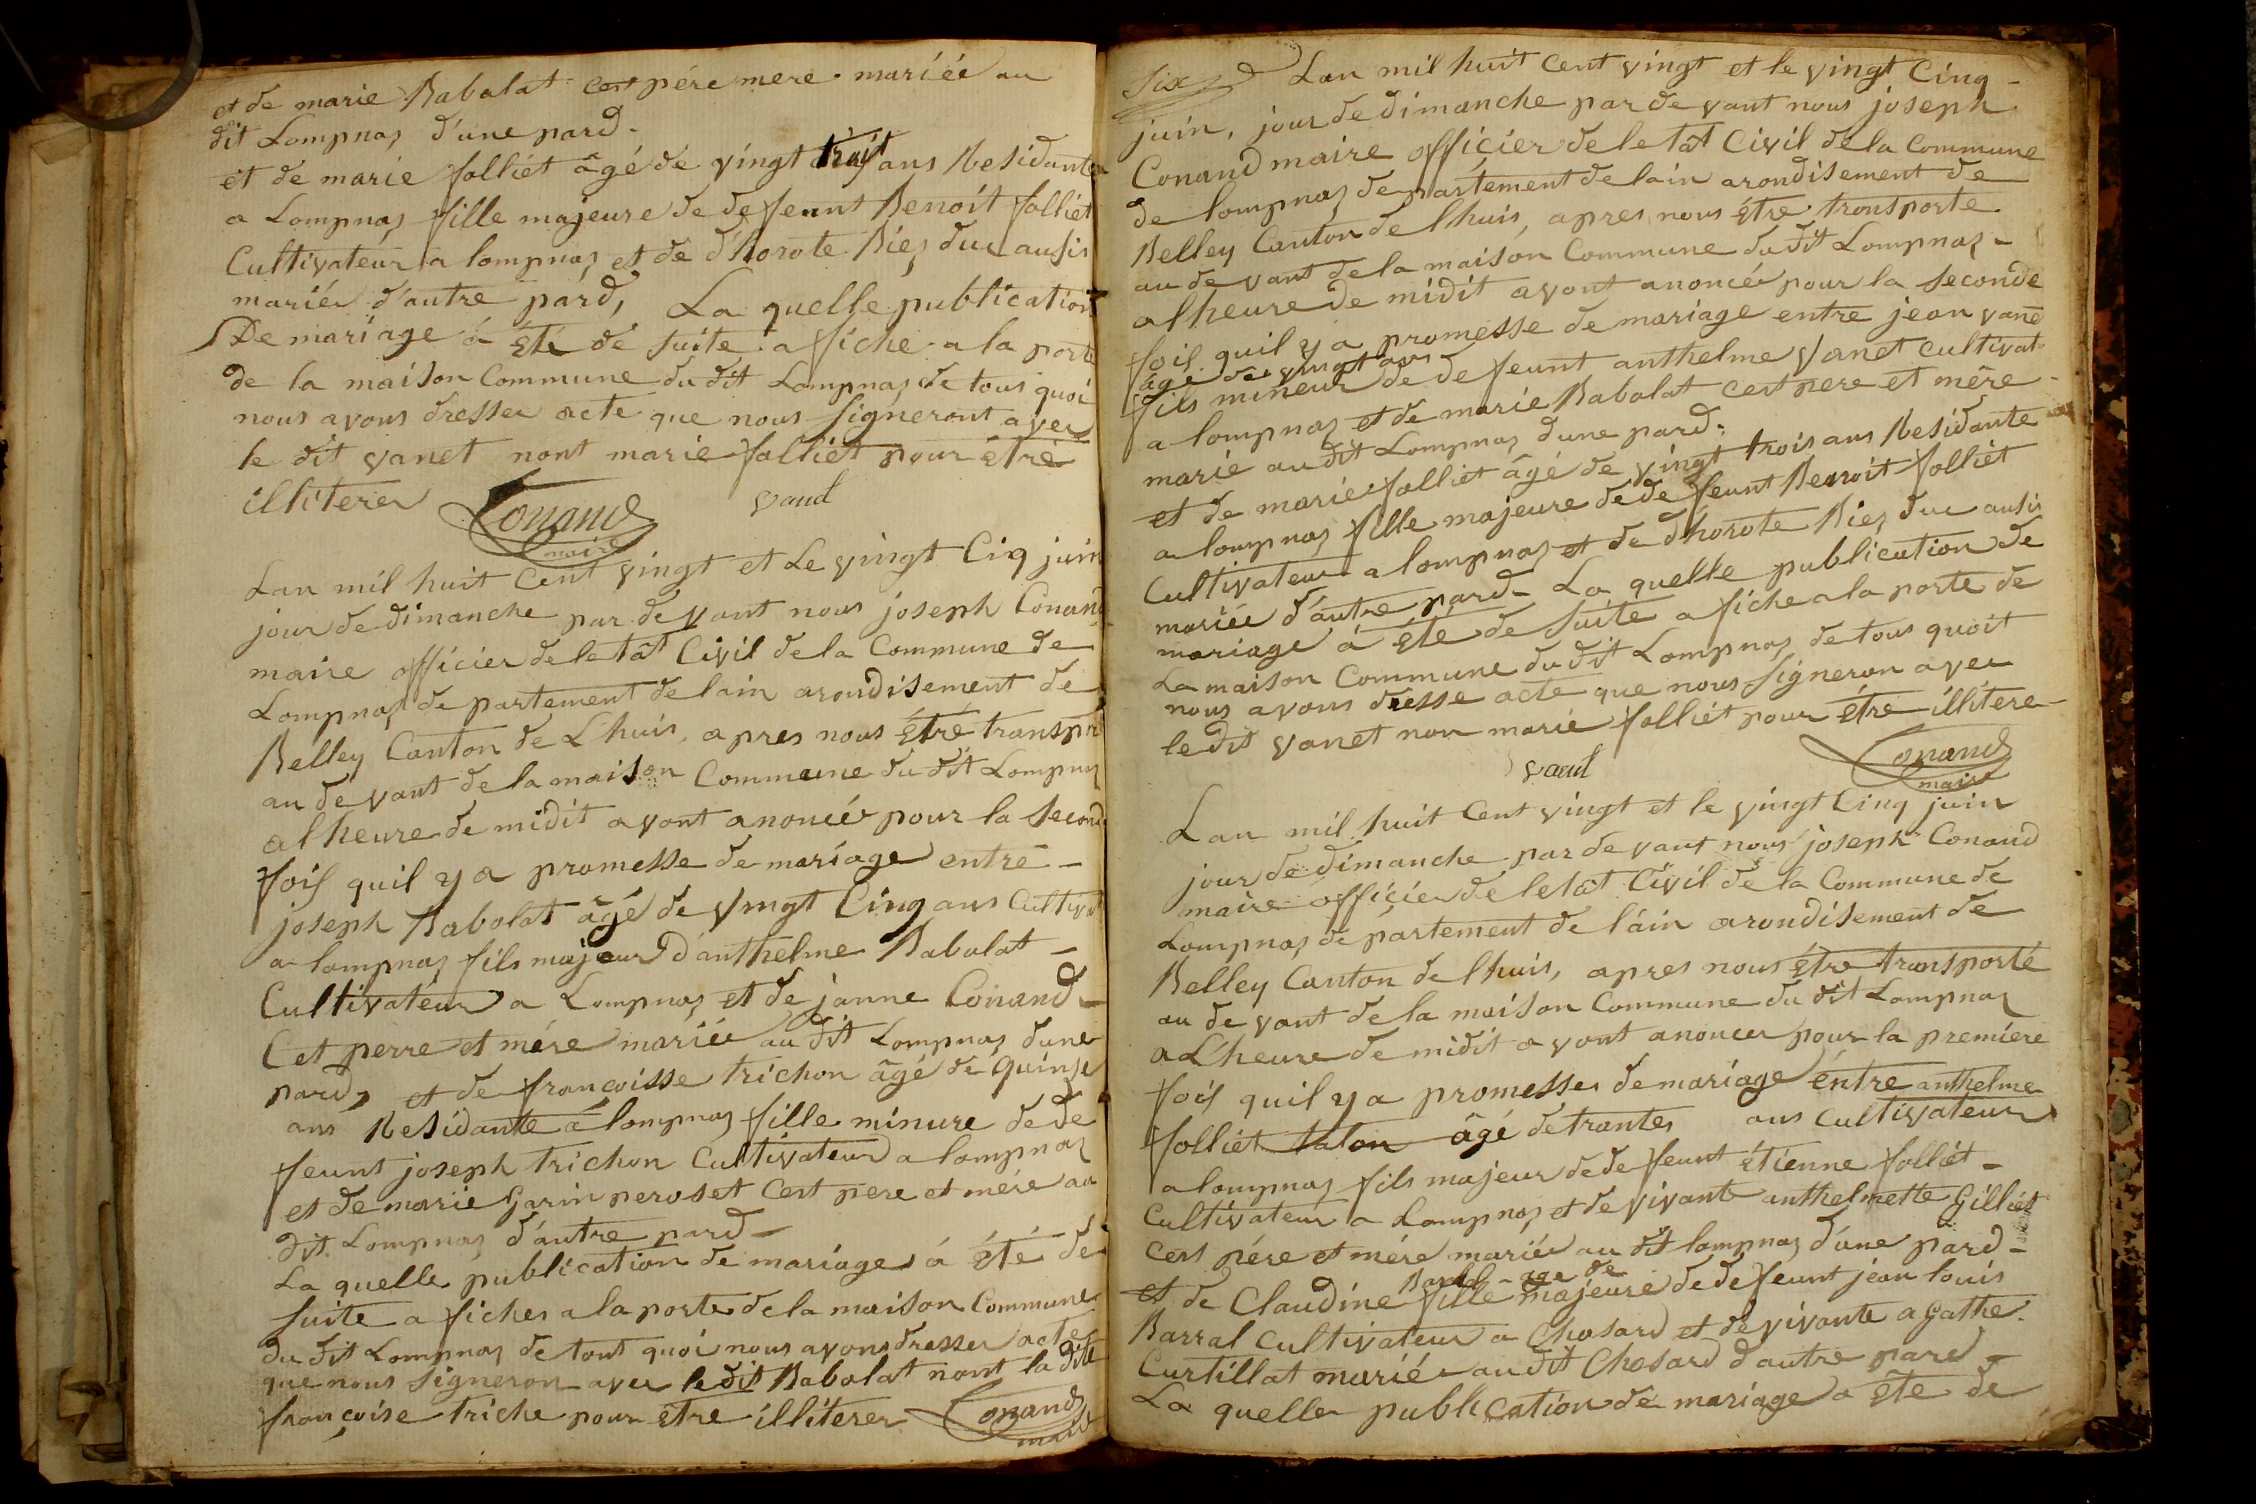 et de marie Babolat cest pére mere mariéé au
dit Lompnas d'une pard -
et de marié folliét âgé de vingt trois ans Residante
a Lompnas fille majeure de defeunt Benoit folliét
Cultivateur a lompnas et de d'horote Bies duc ausis
mariér d'autre párd, La quelle publication
De mariage á été dé suite afiche a la porte
de la maison Commune du dit Lompnas de tous quoi
nous avons dresser acte que nous signeront avec
le dit vanet nont marie folliét pour étré
illiterer Conand vaud
maire
Lan mil huit Cent vingt et Le vingt Ciq juin
jour de dimanche par devant nous joseph Conand
maire officier de letât Civil de la Commune de
Lompnas departement de lain arondisement de
Belley Canton de Lhuis, apres nous étré transpor
au devant de la maison Commeune du dit Lompnas
alheure de midit avont anoncér pour la second
fois quil y a promesse de mariage entré -
joseph Babolat âgé de vingt Cinq ans Cultivat
a lompnas fils majeur d'anthelme Babolat -
Cultivatéur a Lompnas et de janne Conand -
Cet perre et mére mariée au dit Lompnas dune
pard, et de francoisse trichon âgé de quinse
ans Residante á lompnas fille minure de de
feunt joseph trichon Cultivateur a lompnas
et de marie Garin peroset Cest pere et mére au
dit Lompnas d'áutre pard -
La quelle publication de mariages á été de
suite afiches a la porte de la maison Commune
du dit Lompnas de tout quoi nous avons dresser acte
que nous signeron avec le dit Babolat nont la dite
françoise triche pour etre illiterer Conand
maire
Six Lan mil huit Cent vingt et le vingt Cinq -
juin, jour de dimanche par devant nous joseph
Conand maire officier de letât Civil de la Commune
de lompnas departement de lain arondisement de
Belley Canton de lhuis, apres nous étre transporte
au devant de la maison Commune du dit Lompnas -
alheure de midit avont anoncér pour la seconde
fois quil y a promesse de mariage entre jean vand
âgé de vingt ans
fils mineur de defeunt anthelme vanet cultivat
a lompnas et de marie Babolat cest pere et mére -
marié au dit Lompnas dune pard.
et de marie folliet âgé de vingt trois ans Residante
a lompnas fille majeure de defeunt Benoit folliét
Cultivateur a lompnas et de d'horote Bies duc ausis
mariée d'autre pard - La quelle publication de
mariage á été de suite afiche a la porte de
La maison Commune du dit Lompnas de tous quoit
nous avons dresse acte que nous signeron avec
le dit vanet non marié folliét pour étre illitere -
vaud Conand
maire
Lan mil huit Cent vingt et le vingt Cinq juin
jour de dimanche par devant nous joseph Conand
maire officier de letât Civil de la Commune de
Lompnas departement de l'áin arondisement de
Belley Canton de lhuis, apres nous étre transporté
au devant de la maison Commune du dit Lompnas
a L'heure de midit avont anoncer pour la premiere
fois quil y a promesses de mariage éntre anthelme
folliet talon âgé detrantes ans Cultivateur
a lompnas fils majeur de defeunt étienne folliét -
Cultivateur a Lompnas et de vivante anthelmette Gilliét
cest pére et mére mariér au dit lompnas d'une pard -
Barral age de
et de Claudine fille majeure de defeunt jean louis
Barral Cultivateur a Chosard et de vivante agathe
Curtillat mariér au dit Chosard d'autre pard -
La quelle publication dé mariage a été de